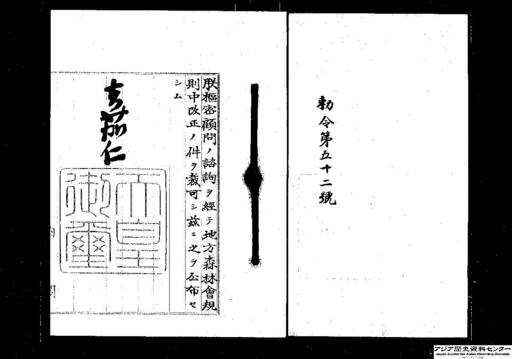 勅令第五十二號
朕樞密顧問ノ諮詢ヲ經テ地方森林會規
則中改正ノ件ヲ裁可シ茲ニ之ヲ公布セ
シム
嘉仁
天皇
御璽
アジア歴史資料センター
Japan Center for Asian Historical Records